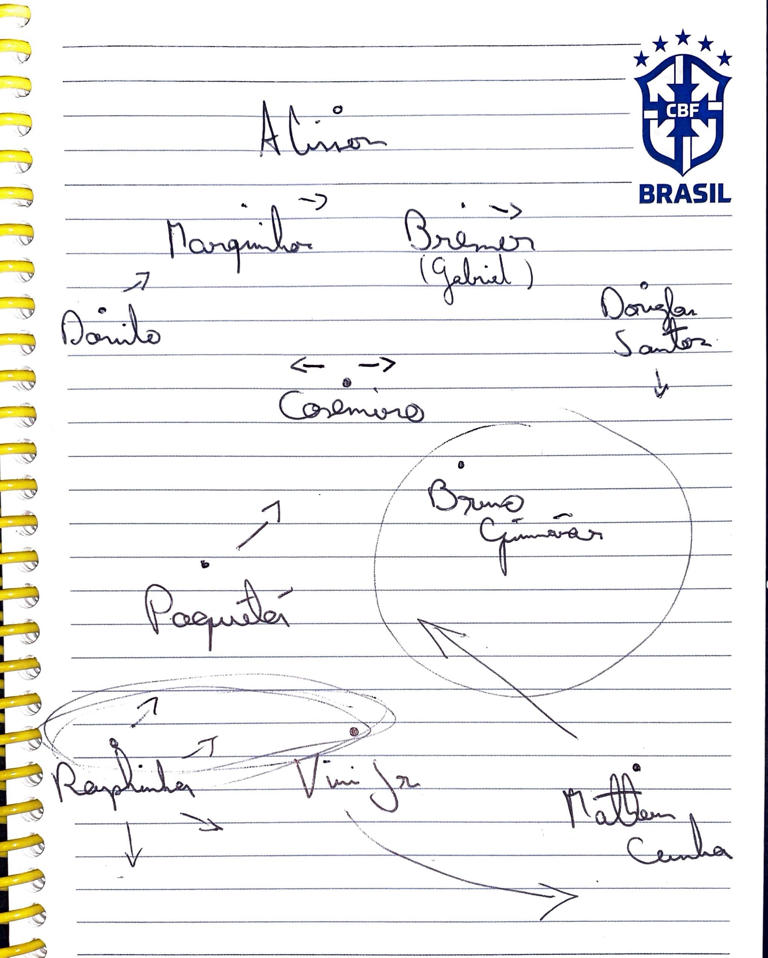 CBF
BRASIL
Alisson
Marquinhos
Bremer
(Gabriel)
Danilo
Douglas
Santos
Casemiro
Bruno
Guimarães
Paquetá
Raphinha
Vini Jr
Matheus
Cunha